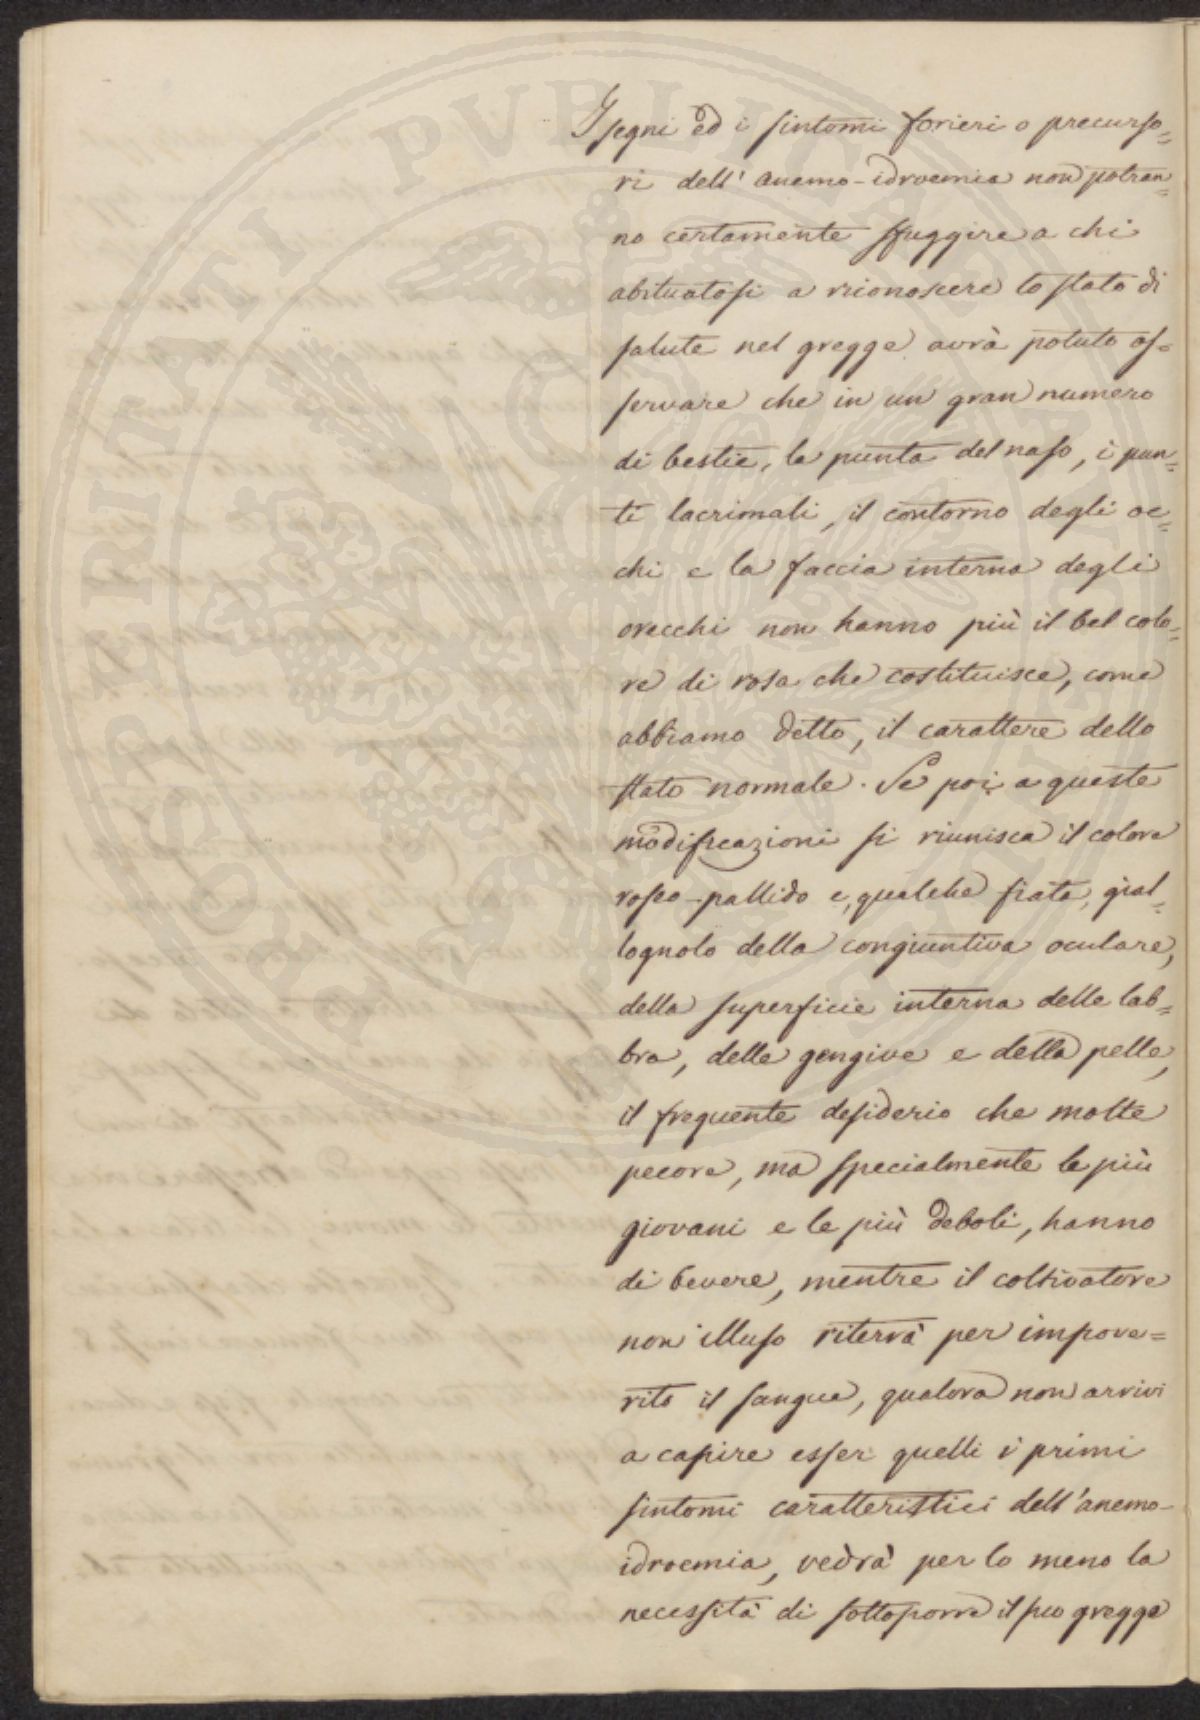 I segni ed i sintomi forieri o precurso=
ri dell' anemo-idroemia non potran=
no certamente sfuggire a chi
abituatosi a riconoscere lo stato di
salute nel gregge avrà potuto os=
servare che in un gran numero
di bestie, la punta del naso, i pun=
ti lacrimali, il contorno degli oc=
chi e la faccia interna degli
orecchi non hanno più il bel colo=
re di rosa che costituisce, come
abbiamo detto, il carattere dello
stato normale. Se poi a queste
modificazioni si riunisca il colore
rosso-pallido e, qualche fiata, gial=
lognolo della congiuntiva oculare,
della superficie interna delle lab=
bra, delle gengive e della pelle,
il frequente desiderio che molte
pecore, ma specialmente le più
giovani e le più deboli, hanno
di bevere, mentre il coltivatore
non illuso riterrà per impove=
rito il sangue, qualora non arrivi
a capire esser quelli i primi
sintomi caratteristici dell'anemo-
idroemia, vedrà per lo meno la
necessità di sottoporre il suo gregge
PROSPERITATI PVBLICAE